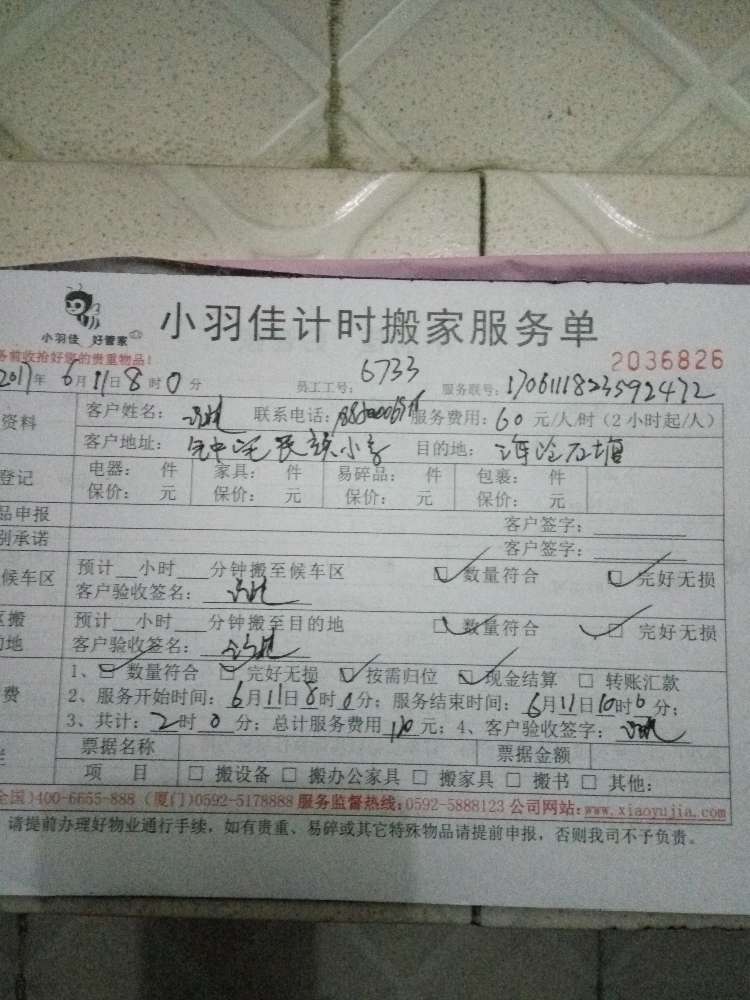 小羽佳 好管家
小羽佳计时搬家服务单
务前收拾好您的贵重物品！
2036826
2017年 6月11日8时0分 员工工号：6733 服务联号：1706111823592472
资料 客户姓名： 联系电话： 服务费用：60元/人/时（2小时起/人）
客户地址： 目的地：
登记 电器： 件 家具： 件 易碎品： 件 包裹： 件
保价： 元 保价： 元 保价： 元 保价： 元
品申报 客户签字：
别承诺 客户签字：
候车区 预计__小时___分钟搬至候车区 □数量符合 □完好无损
客户验收签名：
区搬 预计__小时___分钟搬至目的地 □数量符合 □完好无损
的地 客户验收签名：
费 1、□数量符合 □完好无损 □按需归位 □现金结算 □转账汇款
2、服务开始时间：6月11日8时0分；服务结束时间：6月11日10时0分；
3、共计：2时0分；总计服务费用 元；4、客户验收签字：
票据名称 票据金额
项 目 □搬设备 □搬办公家具 □搬家具 □搬书 □其他：
全国）400-6655-888（厦门）0592-5178888 服务监督热线：0592-5888123 公司网站：www.xiaoyujia.com
请提前办理好物业通行手续，如有贵重、易碎或其它特殊物品请提前申报，否则我司不予负责。